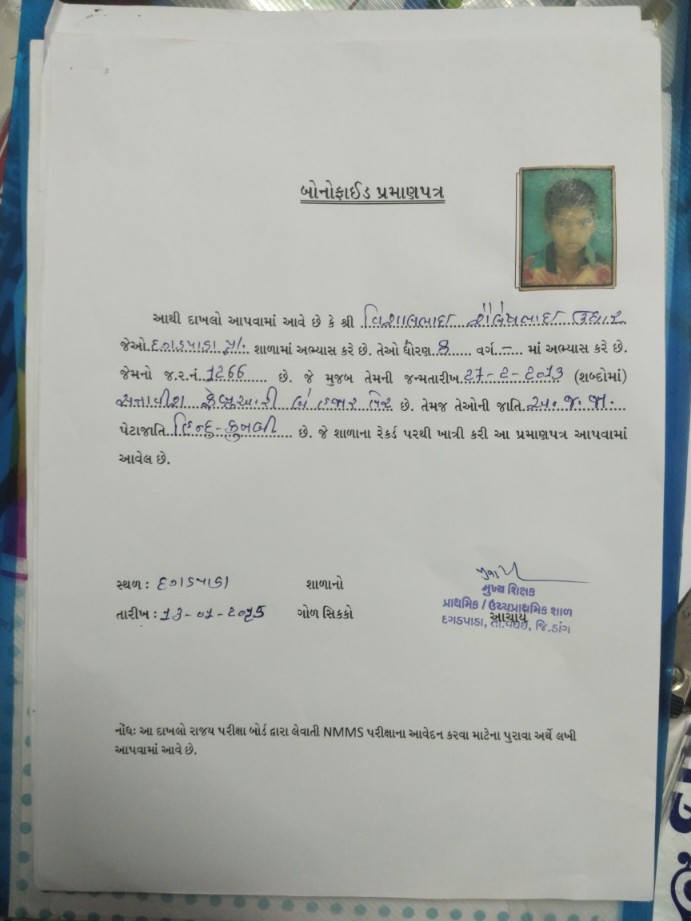 બોનોફાઈડ પ્રમાણપત્ર
આથી દાખલો આપવામાં આવે છે કે શ્રી વિશાલભાઇ શૈલેષભાઇ
જેઓ દગડપાડા પ્રા. શાળામાં અભ્યાસ કરે છે. તેઓ ધોરણ 8 વર્ગ - માં અભ્યાસ કરે છે.
જેમનો જ.ર.નં. 1266 છે. જે મુજબ તેમની જન્મતારીખ 27-2-2013 (શબ્દોમાં)
સત્તાવીશ ફેબ્રુઆરી બે હજાર તેર છે. તેમજ તેઓની જાતિ અ.જ.જા.
પેટાજાતિ હિન્દુ-કુનબી છે. જે શાળાના રેકર્ડ પરથી ખાત્રી કરી આ પ્રમાણપત્ર આપવામાં
આવેલ છે.
સ્થળ : દગડપાડા શાળાનો
તારીખ : 13-01-2025 ગોળ સિક્કો
મુખ્ય શિક્ષક
પ્રાથમિક / ઉચ્ચપ્રાથમિક શાળા
આચાર્ય
દગડપાડા, તા.વઘઇ, જિ.ડાંગ
નોંધઃ આ દાખલો રાજ્ય પરીક્ષા બોર્ડ દ્વારા લેવાતી NMMS પરીક્ષાના આવેદન કરવા માટેના પુરાવા અર્થે લખી
આપવામાં આવે છે.